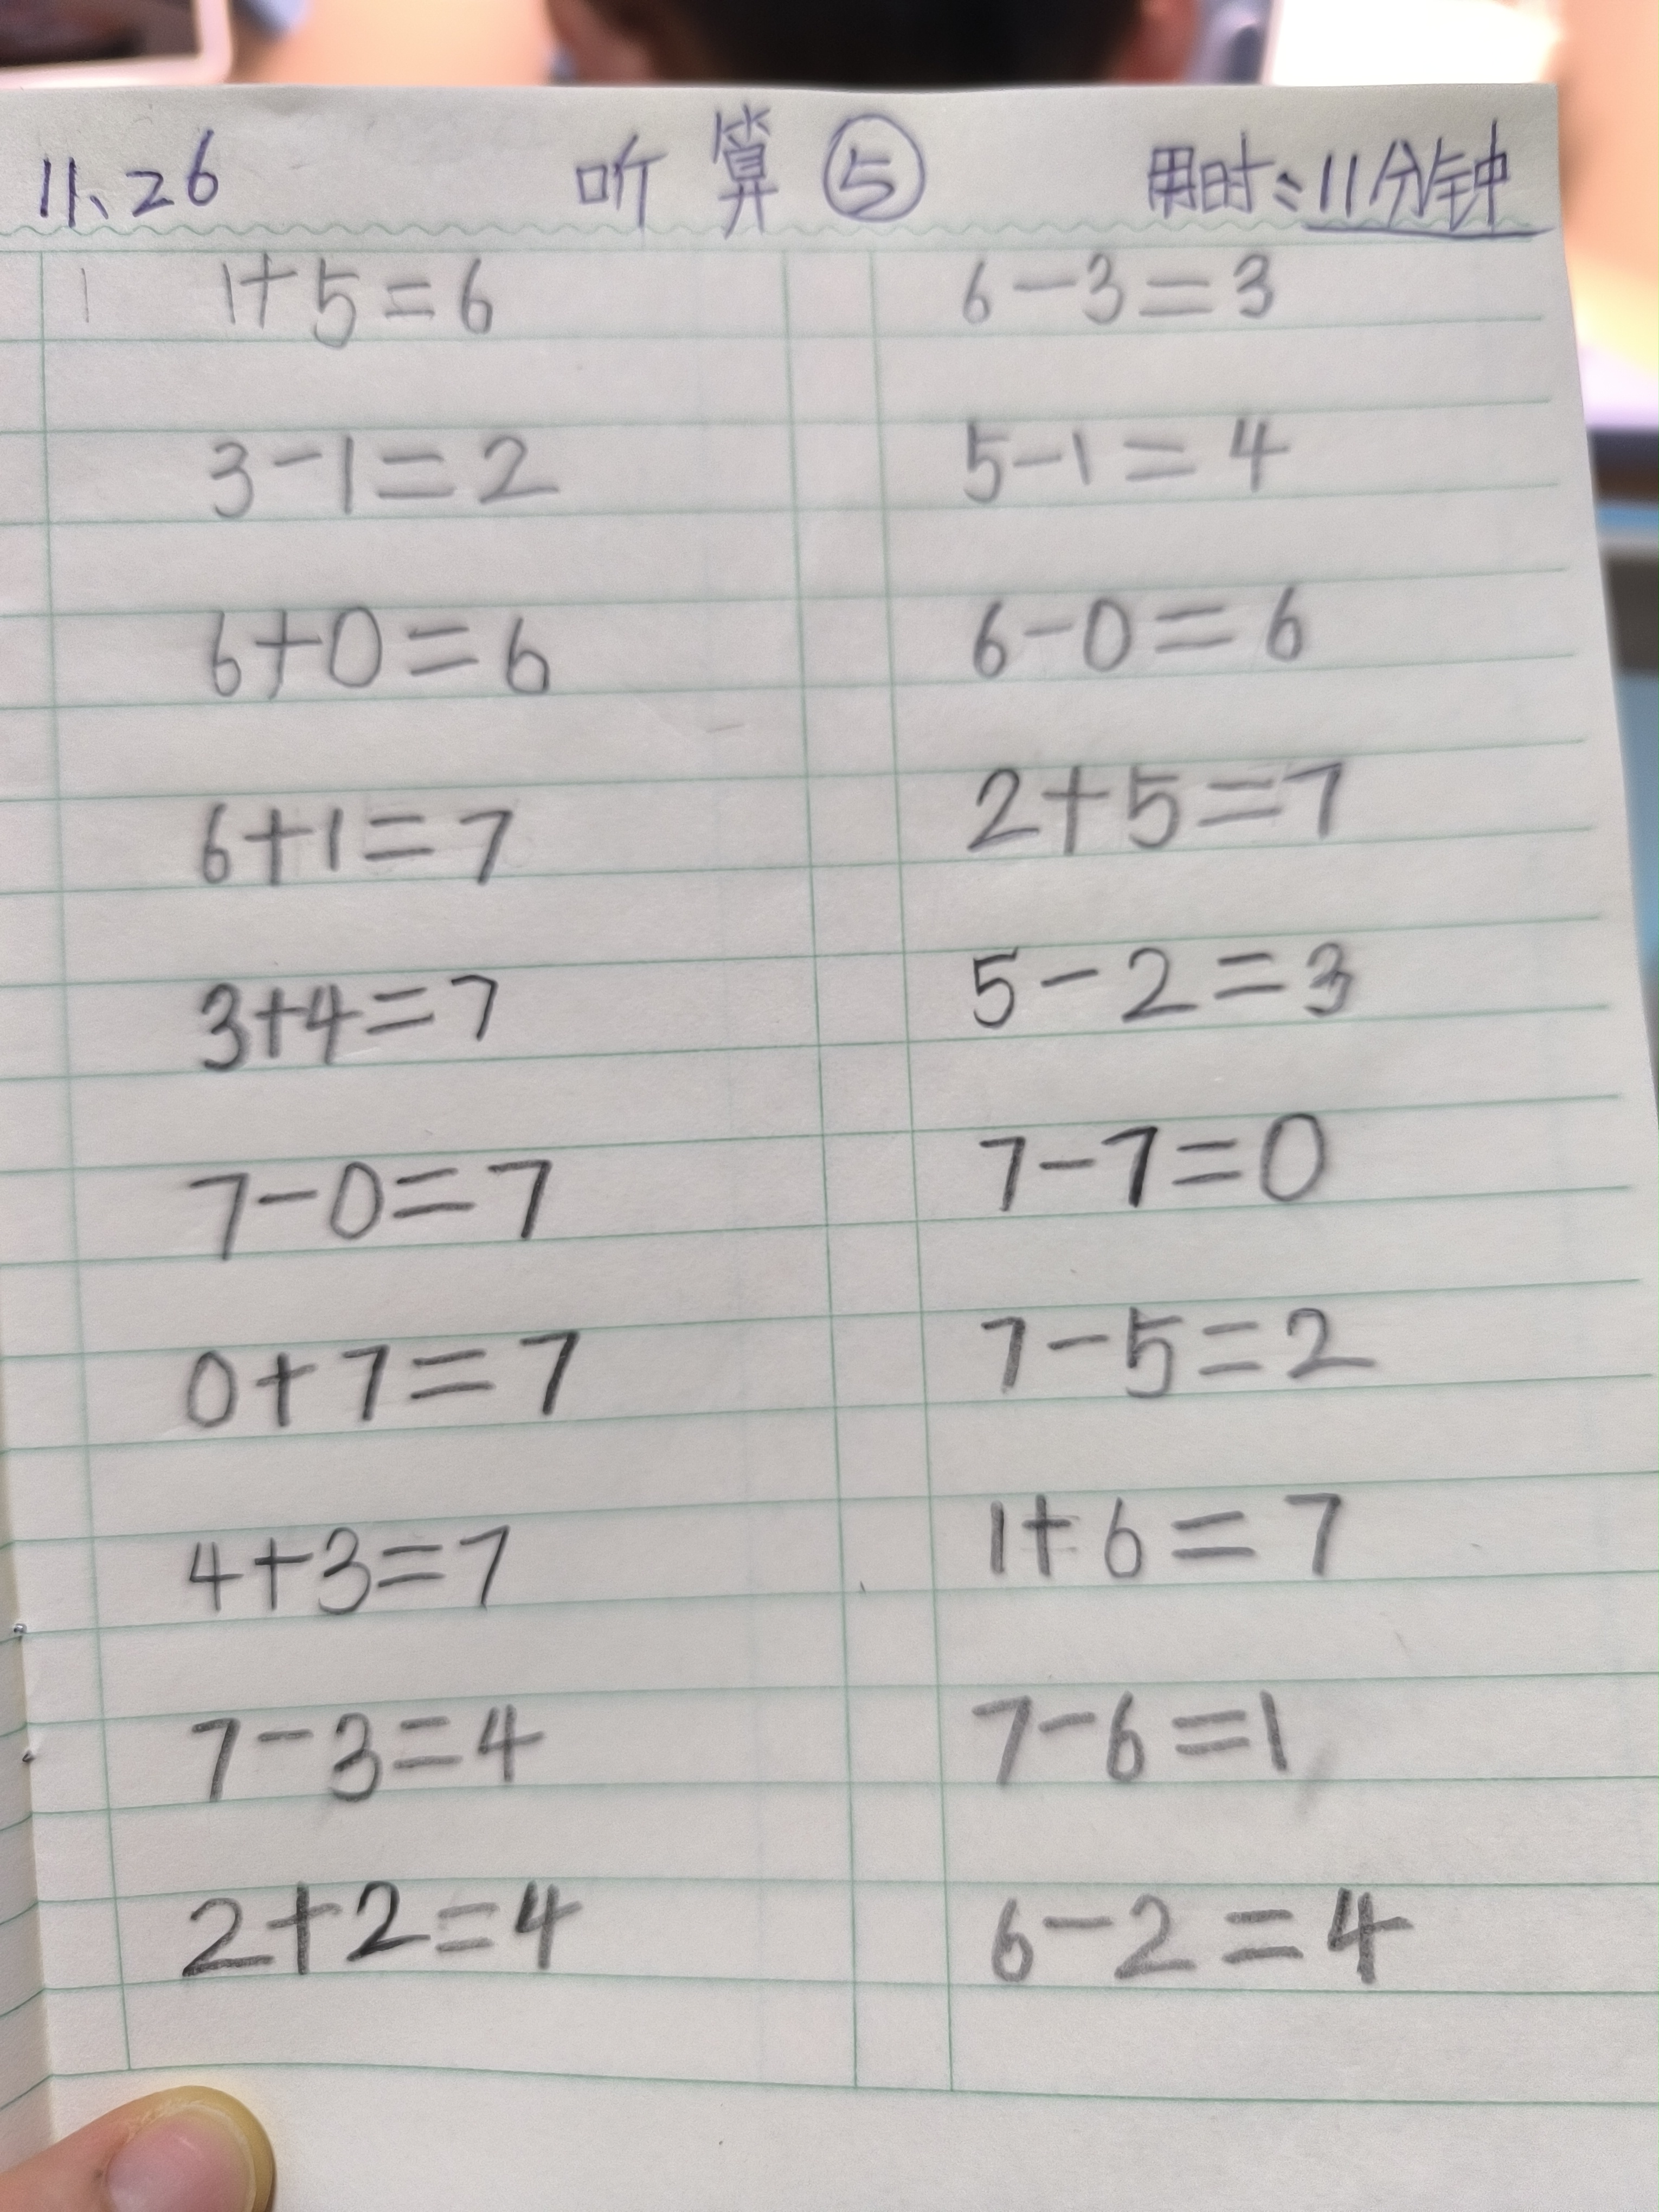 11、26 听算⑤ 用时:11分钟
1 1+5=6 6-3=3
3-1=2 5-1=4
6+0=6 6-0=6
6+1=7 2+5=7
3+4=7 5-2=3
7-0=7 7-7=0
0+7=7 7-5=2
4+3=7 1+6=7
7-3=4 7-6=1
2+2=4 6-2=4